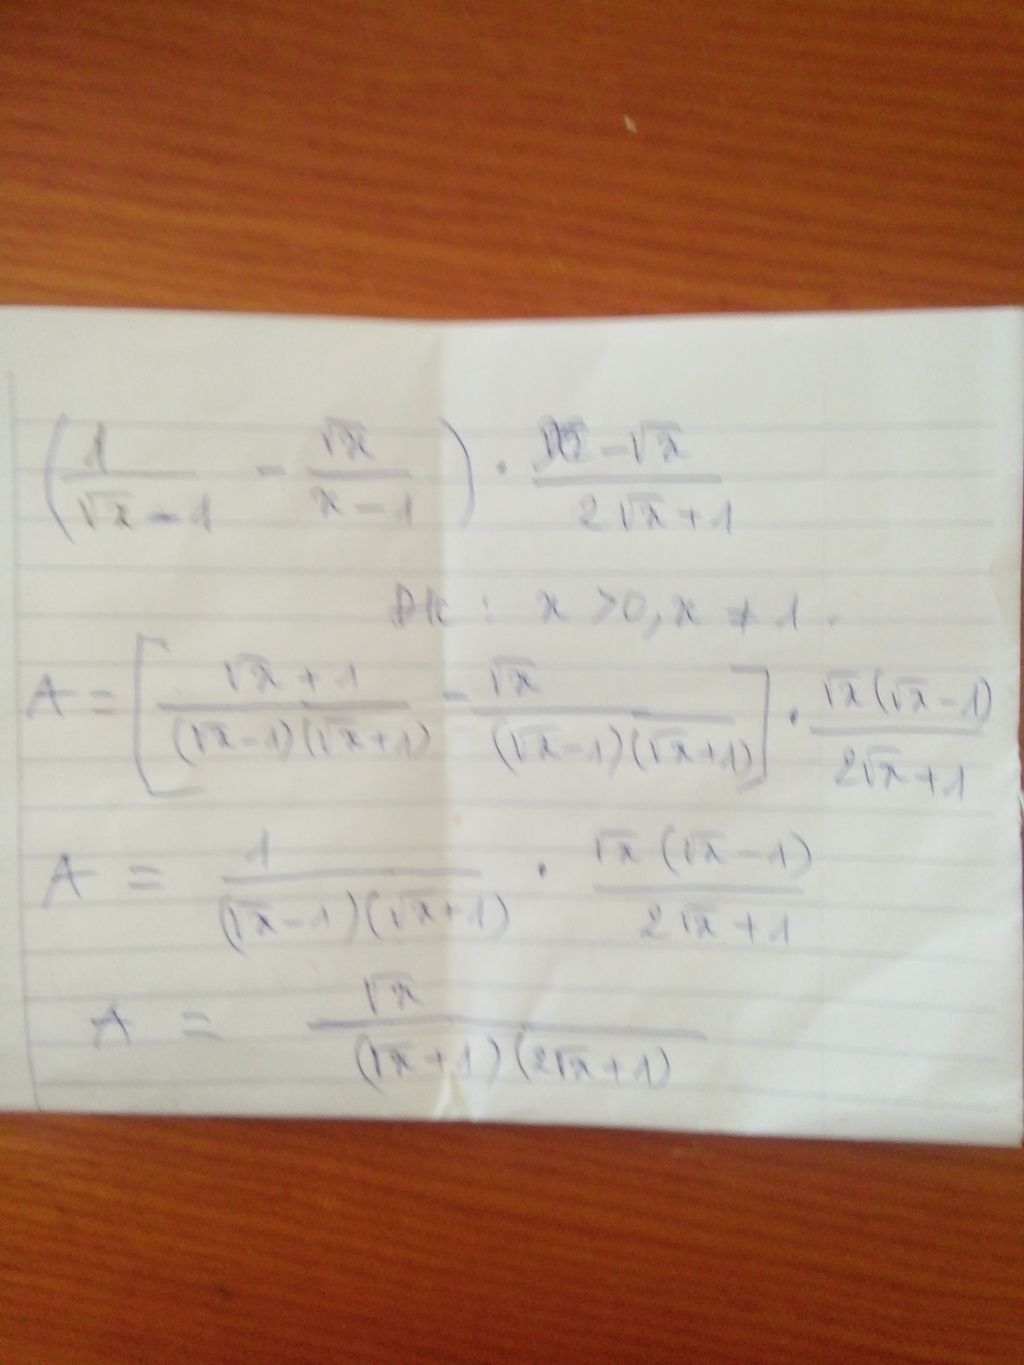 (1/(√x-1) - √x/(x-1)) · (x-√x)/(2√x+1)
ĐK: x > 0, x ≠ 1.
A = [(√x+1)/((√x-1)(√x+1)) - √x/((√x-1)(√x+1))] · √x(√x-1)/(2√x+1)
A = 1/((√x-1)(√x+1)) · √x(√x-1)/(2√x+1)
A = √x/((√x+1)(2√x+1))